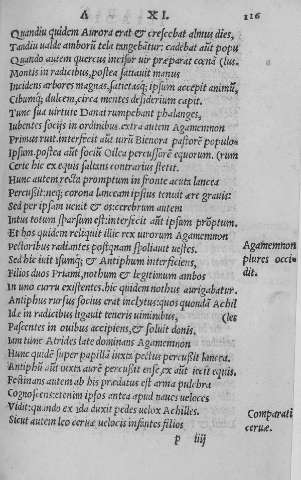 Λ XI. 116
Quandiu quidem Aurora erat & crescebat almus dies,
Tandiu ualde amborũ tela tangebãtur: cadebat aũt popu
Quando autem quercus incisor uir præparat cœnã (lus.
Montis in radicibus, postea satiauit manus
Incidens arbores magnas, satietasq; ipsum accepit animũ,
Cibumq; dulcem, circa mentes desiderium capit.
Tunc sua uirtute Danai rumpebant phalanges,
Iubentes socijs in ordinibus. extra autem Agamemnon
Primus ruit. interfecit aũt uirũ Bienora pastorẽ populo-
Ipsum. postea aũt sociũ Oilea percussorẽ equorum. (rum
Certe hic ex equis saltans contrarius stetit.
Hunc autem recta promptum in fronte acuta lancea
Percussit: neq; corona lanceam ipsius tenuit ære grauis:
Sed per ipsam iuit & os: cerebrum autem
Intus totum sparsum est: interfecit aũt ipsum prõptum.
Et hos quidem reliquit illic rex uirorum Agamemnon
Pectoribus radiantes postquam spoliauit uestes.
Sed hic iuit Isumq; & Antiphum interficiens,
Filios duos Priami, nothum & legitimum ambos
In uno curru existentes. hic quidem nothus aurigabatur.
Antiphus rursus socius erat inclytus: quos quondã Achil
Idæ in radicibus ligauit teneris uiminibus, (les
Pascentes in ouibus accipiens, & soluit donis.
Iam tunc Atrides late dominans Agamemnon
Hunc quidẽ super papillã iuxta pectus percussit lancea.
Antiphũ aũt iuxta aurẽ percussit ense, ex aũt iecit equis,
Festinans autem ab his prædatus est arma pulchra
Cognoscens: etenim ipsos antea apud naues ueloces
Vidit: quando ex ida duxit pedes uelox Achilles.
Sicut autem leo ceruæ uelocis infantes filios
p iiij
Agamemnon
plures occi-
dit.
Comparatio
ceruæ.